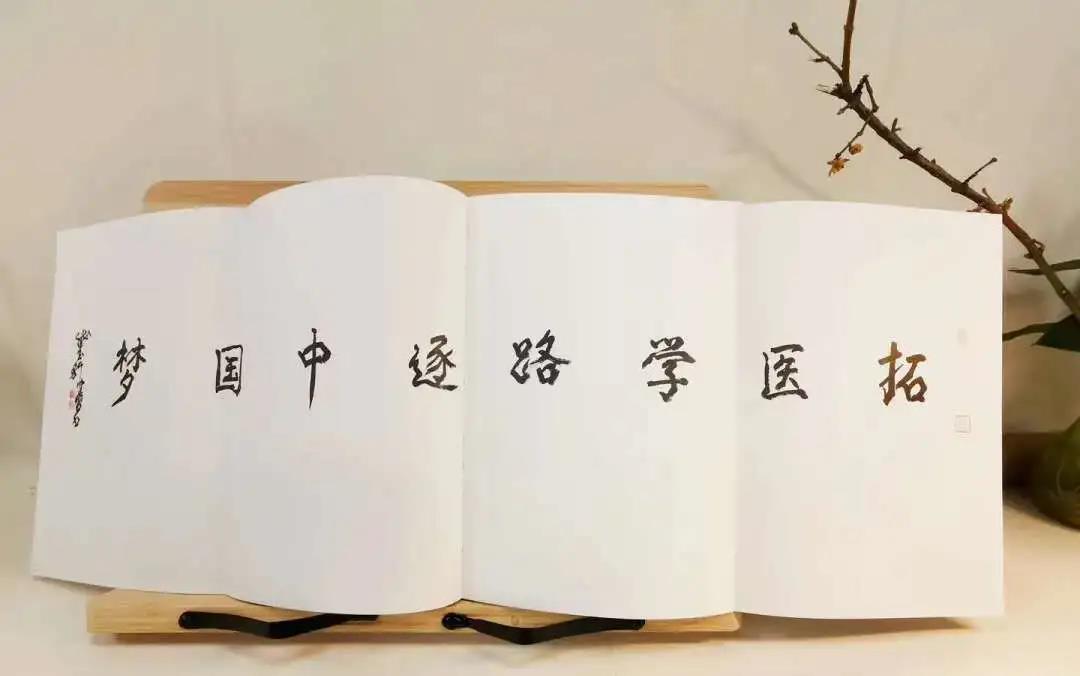 拓医学路逐中国梦